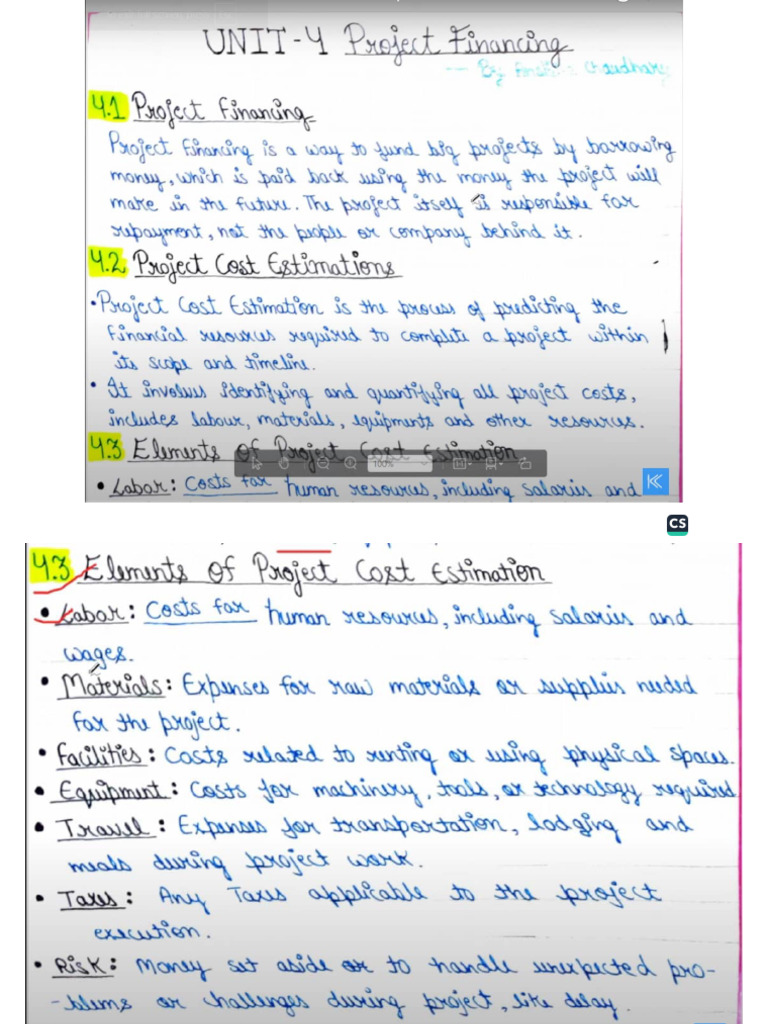 UNIT-4 Project Financing
By Chaudhary
4.1 Project Financing
Project Financing is a way to fund big projects by borrowing
money, which is paid back using the money the project will
make in the future. The project itself is responsible for
repayment, not the people or company behind it.
4.2 Project Cost Estimations
• Project Cost Estimation is the process of predicting the
financial resources required to complete a project within
its scope and timeline.
• It involves identifying and quantifying all project costs,
includes labour, materials, equipments and other resources.
4.3 Elements of Project Cost Estimation
100%
• Labor: Costs for human resources, including salaries and
CS
4.3 Elements of Project Cost Estimation
• Labor: Costs for human resources, including salaries and
wages.
• Materials: Expenses for raw materials or supplies needed
for the project.
• Facilities: Costs related to renting or using physical spaces.
• Equipment: Costs for machinery, tools, or technology required
• Travel: Expenses for transportation, lodging and
meals during project work.
• Taxes: Any Taxes applicable to the project
execution.
• Risk: Money set aside or to handle unexpected pro-
-blems or challenges during project, like delay.